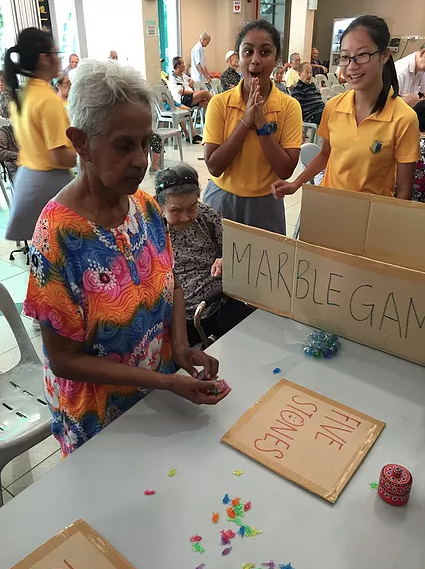 MARBLE GAM
FIVE
STONES